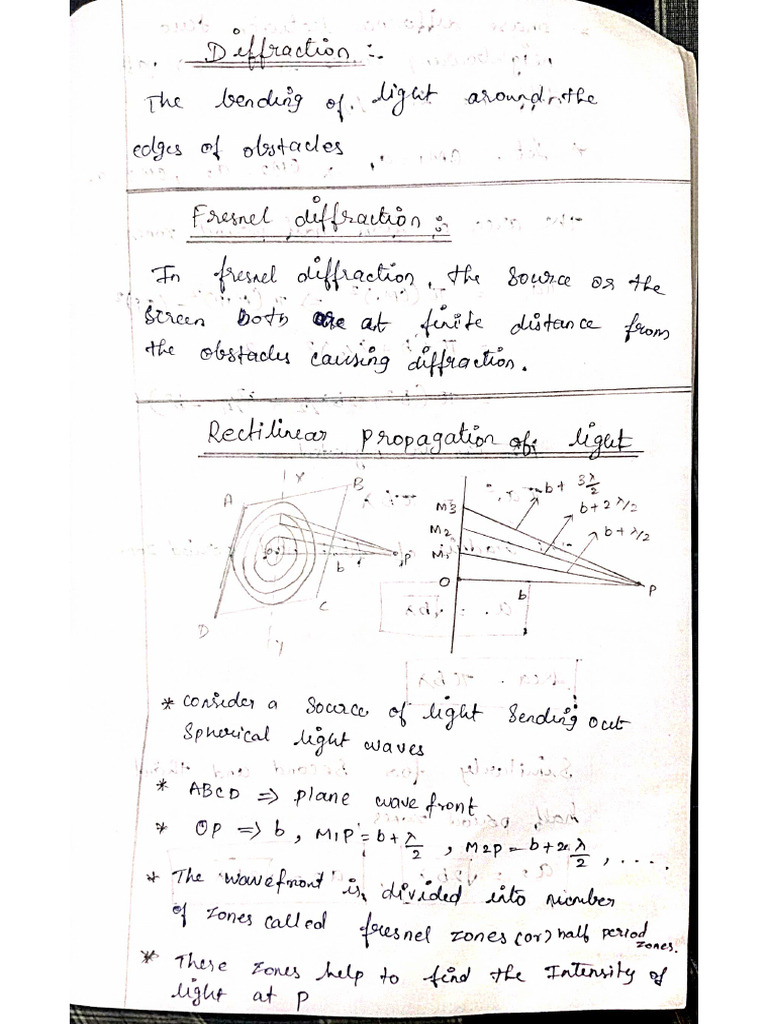 Diffraction :-
The bending of light around the
edges of obstacles
Fresnel diffraction :
In fresnel diffraction, the source or the
screen both are at finite distance from
the obstacles causing diffraction.
Rectilinear propagation of light
X
A
B
P
b
C
D
Y
M3
M2
M1
O
b
P
b + 3λ/2
b + 2λ/2
b + λ/2
* consider a source of light sending out
spherical light waves
* ABCD => plane wavefront
* OP => b, M1P = b + λ/2, M2P = b + 2λ/2, ....
* The wavefront is divided into number
of zones called fresnel zones (or) half period
zones.
* These zones help to find the Intensity of
light at P